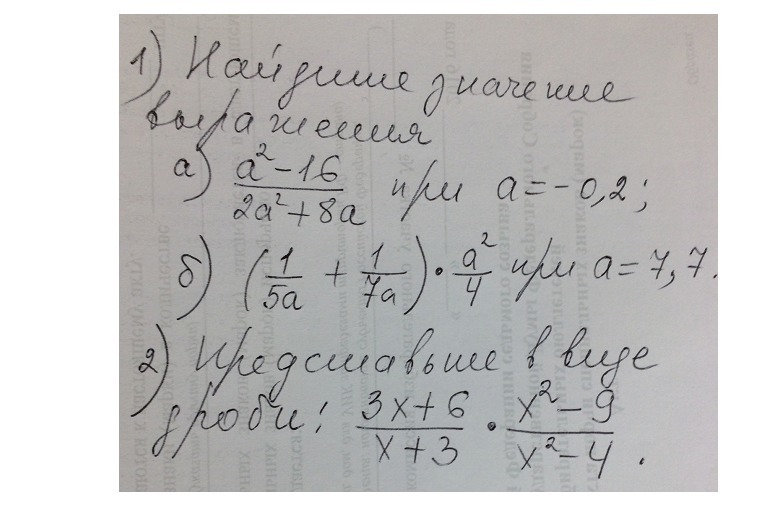 1) Найдите значение
выражения
а) (a²-16)/(2a²+8a) при a=-0,2;
б) (1/5a + 1/7a)·a²/4 при a=7,7.
2) Представьте в виде
дроби: (3x+6)/(x+3)·(x²-9)/(x²-4).